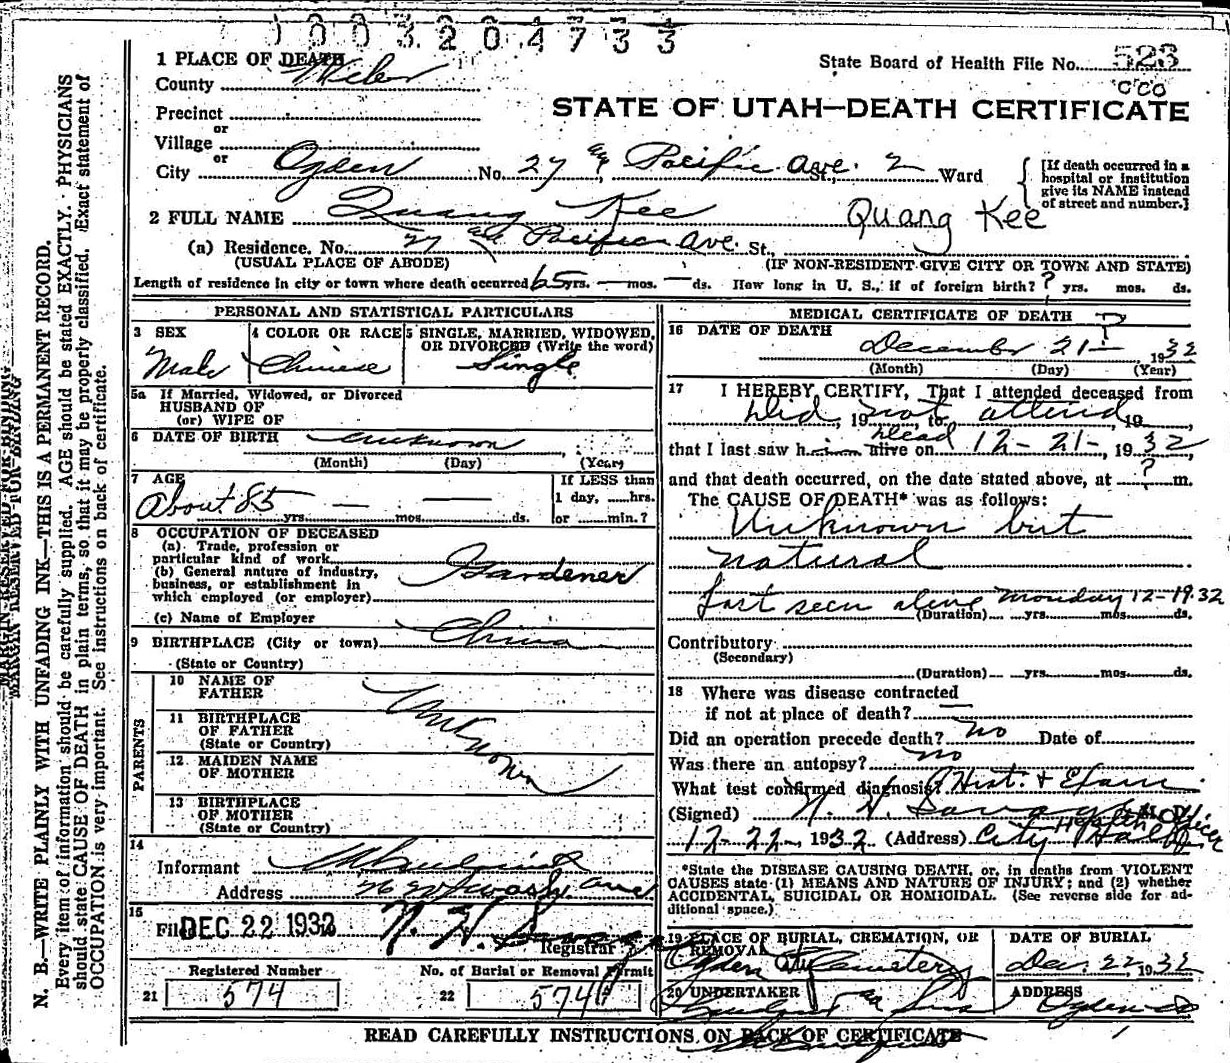 1003204733
1 PLACE OF DEATH
County Weber
State Board of Health File No. 523
CCO
Precinct
or
Village
or
STATE OF UTAH—DEATH CERTIFICATE
City Ogden No. 27 Pacific Ave. St. 2 Ward
[If death occurred in a
hospital or institution
give its NAME instead
of street and number.]
2 FULL NAME Quang Kee Quang Kee
(a) Residence. No. 27 Pacific Ave. St.,
(USUAL PLACE OF ABODE) (IF NON-RESIDENT GIVE CITY OR TOWN AND STATE)
Length of residence in city or town where death occurred 65 yrs. — mos. — ds. How long in U. S., if of foreign birth? ? yrs. mos. ds.
PERSONAL AND STATISTICAL PARTICULARS
3 SEX
Male
4 COLOR OR RACE
Chinese
5 SINGLE, MARRIED, WIDOWED,
OR DIVORCED (Write the word)
Single
5a If Married, Widowed, or Divorced
HUSBAND OF
(or) WIFE OF
6 DATE OF BIRTH unknown
(Month) (Day) (Year)
7 AGE
About 85 yrs. — mos. — ds.
If LESS than
1 day, ......hrs.
or ......min.?
8 OCCUPATION OF DECEASED
(a) Trade, profession or
particular kind of work
(b) General nature of industry,
business, or establishment in
which employed (or employer)
Gardener
(c) Name of Employer
9 BIRTHPLACE (City or town) China
(State or Country)
PARENTS
10 NAME OF
FATHER
11 BIRTHPLACE
OF FATHER
(State or Country)
12 MAIDEN NAME
OF MOTHER
13 BIRTHPLACE
OF MOTHER
(State or Country)
Unknown
14
Informant
Address Wash. Ave
15
Filed DEC 22 1932 N. H. Savage
Registrar
Registered Number
21 574
No. of Burial or Removal Permit
22 574
MEDICAL CERTIFICATE OF DEATH
16 DATE OF DEATH ?
December 21— 1932
(Month) (Day) (Year)
17 I HEREBY CERTIFY, That I attended deceased from
Did, 19 not to attend, 19
that I last saw him dead alive on 12-21-, 1932,
and that death occurred, on the date stated above, at ? m.
The CAUSE OF DEATH* was as follows:
Unknown but
natural
Last seen alive Monday 12-19-32
(Duration) yrs. mos. ds.
Contributory
(Secondary)
(Duration) yrs. mos. ds.
18 Where was disease contracted
if not at place of death? —
Did an operation precede death? no Date of
Was there an autopsy? no
What test confirmed diagnosis? Hist. + Exam
(Signed) N. H. Savage M. D.
Health Officer
12-22-1932 (Address) City Hall
*State the DISEASE CAUSING DEATH, or, in deaths from VIOLENT
CAUSES state (1) MEANS AND NATURE OF INJURY; and (2) whether
ACCIDENTAL, SUICIDAL OR HOMICIDAL. (See reverse side for ad-
ditional space.)
19 PLACE OF BURIAL, CREMATION, OR
REMOVAL
Ogden City Cemetery
DATE OF BURIAL
Dec. 22, 1932
20 UNDERTAKER
ADDRESS
Ogden
READ CAREFULLY INSTRUCTIONS ON BACK OF CERTIFICATE
MARGIN RESERVED FOR BINDING
N. B.—WRITE PLAINLY WITH UNFADING INK—THIS IS A PERMANENT RECORD.
Every item of information should be carefully supplied. AGE should be stated EXACTLY. PHYSICIANS
should state CAUSE OF DEATH in plain terms, so that it may be properly classified. Exact statement of
OCCUPATION is very important. See instructions on back of certificate.